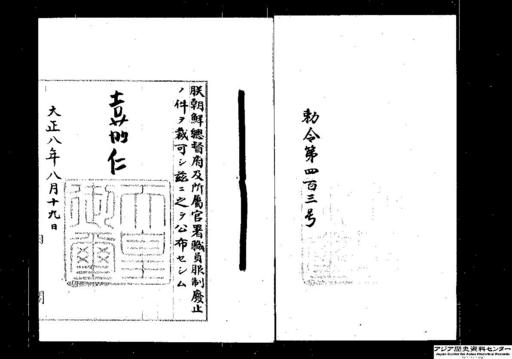 勅令第四百三号
朕朝鮮總督府及所屬官署職員服制廢止
ノ件ヲ裁可シ茲ニ之ヲ公布セシム
嘉仁
天皇御璽
大正八年八月十九日
アジア歴史資料センター
Japan Center for Asian Historical Records